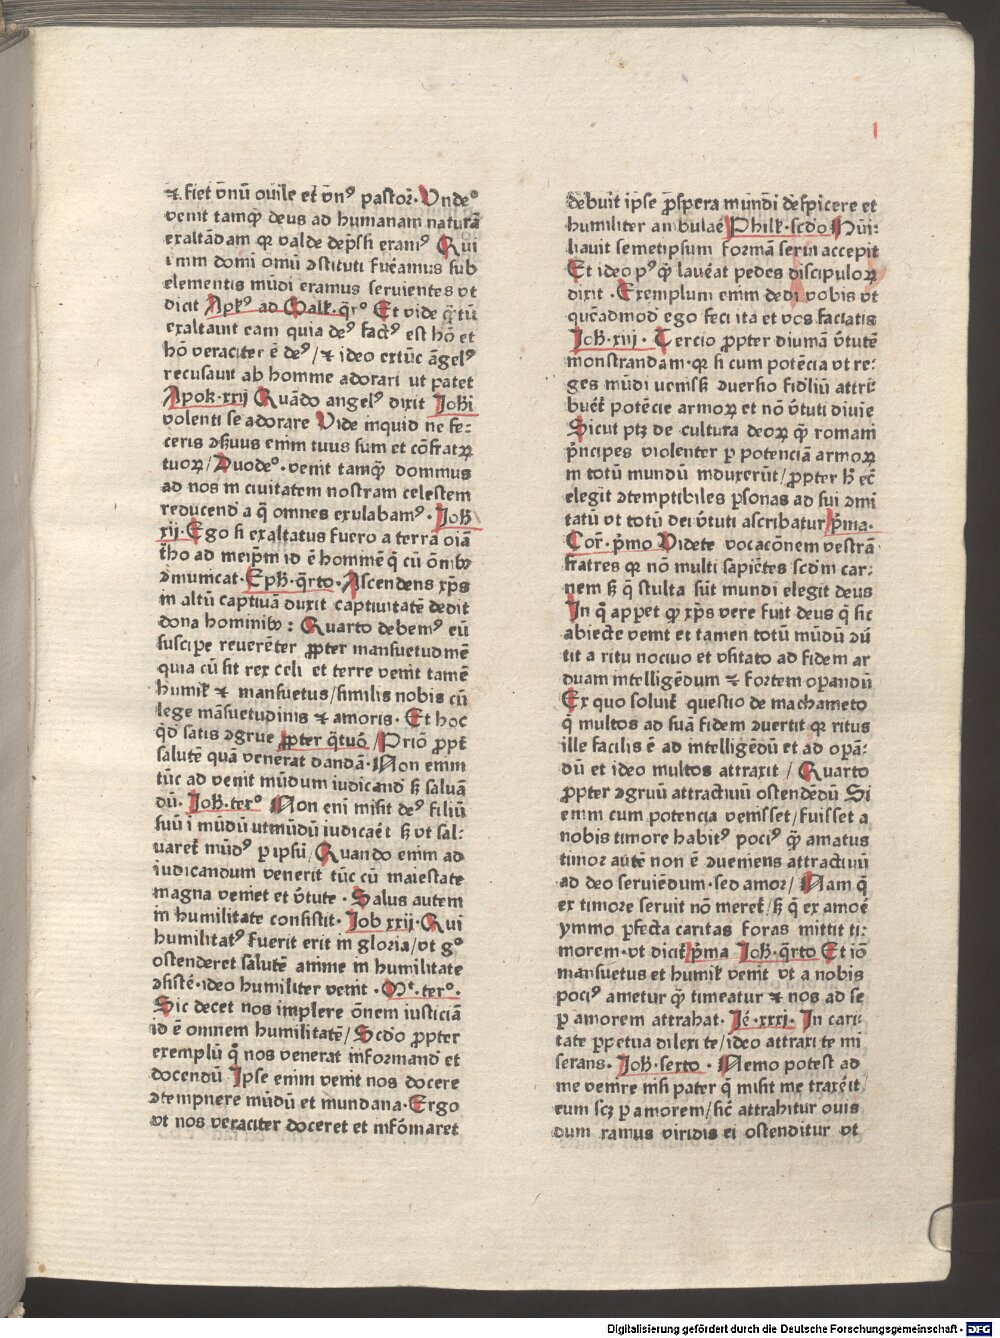 ⁊ fiet vnū ouile et vnꝰ pastor̄. Vndeº
venit tamq̄ deus ad humanam naturā
exaltādam qꝛ valde dep̄ssi eramꝰ Qui
inim domī omū ꝯstituti fuēamus sub
elementis mūdi eramus seruientes vt
dicit Apľꝰ ad Galľ. q̄rº Et vide q̄ tū
exaltauit eam quia deꝰ factꝰ est hō et
hō veraciter ē deꝰ/⁊ ideo extūc āgelꝰ
recusauit ab homme adorari ut patet
Apok. xxij Quādo angelꝰ dixit Joh̄i
volenti se adorare Vide inquid ne fe⸗
ceris ꝯs̄uus enim tuus sum et cōfratꝝ
tuoꝝ/Duodeº. venit tamq̄ dominus
ad nos in ciuitatem nostram celestem
reducend a q̄ omnes exulabamꝰ. Joh̄
xij. Ego si exaltatus fuero a terra oīa
t̄ho ad meip̄m id ē hommē q̄ cū ōnibꝫ
ꝯmunicat. Eph̄. q̄rto. Ascendens xp̄s
in altū captiuā duxit captiuitatē dedit
dona hominibꝫ : Quarto debemꝰ eū
suscipe reuerēter ꝓpter mansuetudinē
quia cū sit rex celi et terre venit tamē
humiľ ⁊ mansuetus/similis nobis cū
lege māsuetudinis ⁊ amoris. Et hoc
q̄d satis ꝯgrue ꝓpter q̄tuō/Priō ꝓpt̄
salutē quā venerat dandā. Non enim
tūc ad venit mūdum iudicand sꝫ saluā
dū. Joh̄. terº Non enī misit deꝰ filiū
suū i mūdū ut mūdū iudicaēt sꝫ vt sal⸗
uaret̄ mūdꝰ ꝑ ip̄sū/Quando enim ad
iudicandum venerit tūc cū maiestate
magna veniet et v̄tute. Salus autem
in humilitate consistit. Job xxij. Qui
humilitatꝰ fuerit erit in gloria/vt gº
ostenderet salutē anime in humilitate
ꝯsistē. ideo humiliter venit. Mᵗ. terº.
Sic decet nos implere ōnem iusticiā
id ē omnem humilitatē/Scdo ꝓpter
exemplū q̄ nos venerat informand et
docendū Ipse enim venit nos docere
ꝯtempnere mūdū et mundana. Ergo
vt nos veraciter doceret et infōmaret
debuit ipse ꝓspera mundi despicere et
humiliter ambulaē Philľ. scdo Hui⸗
liauit semetipsum formā serui accepit
Et ideo pꝰ q̄ lauēat pedes discipuloꝝ
dixit. Exemplum enim dedi vobis vt
quēadmod ego feci ita et vos faciatis
Joh̄. xiij. Tercio ꝓpter diuinā v̄tutē
monstrandam. qꝛ si cum potēcia vt re⸗
ges mūdi uenissꝫ ꝯuersio fidliū attri⸗
buēt̄ potēcie armoꝝ et nō v̄tuti diuīe
Sicut ptꝫ de cultura deoꝝ q̄ romani
p̄ncipes violenter ꝑ potenciā armoꝝ
in totū mundū induxerūt/ꝓpter h̄ ec̄
elegit ꝯtemptibiles ꝑsonas ad sui ꝯmī
tatū vt totū dei v̄tuti ascribatur/p̄ma.
Cor̄. p̄mo Videte vocacōnem vestrā
fratres qꝛ nō multi sapiētes scdm̄ car⸗
nem sꝫ q̄ stulta sūt mundi elegit deus
In q̄ appet ꝙ xp̄s vere fuit deus q̄ sic
abiecte venit et tamen totū mūdū ꝯū
tit a ritu nociuo et vsitato ad fidem ar
duam intelligēdum ⁊ fortem oꝑandū
Ex quo soluit̄ questio de machameto
q̄ multos ad suā fidem ꝯuertit qꝛ ritus
ille facilis ē ad intelligēdū et ad oꝑā⸗
dū et ideo multos attraxit / Quarto
ꝓpter ꝯgruū attractiuū ostendēdū Si
enim cum potencia venisset/fuisset a
nobis timore habitꝰ pociꝰ q̄ amatus
timor autē non ē ꝯueniens attractiuū
ad deo seruiēdum. sed amor/ Nam q̄
ex timore seruit nō meret̄/sꝫ q̄ ex amoē
ymmo ꝑfecta caritas foras mittit ti⸗
morem. vt dicit̄ p̄ma Joh̄. q̄rto Et iō
mansuetus et humiľ venit vt a nobis
pociꝰ ametur q̄ timeatur ⁊ nos ad se
ꝑ amorem attrahat. Jē. xxxi. In cari⸗
tate ꝑpetua dilexi te/ideo attraxi te mi
serans. Joh̄. sexto. Nemo potest ad
me venire nisi pater q̄ misit me traxēit/
eum scꝫ ꝑ amorem/sic̄ attrahitur ouis
dum ramus viridis ei ostenditur vt
Digitalisierung gefördert durch die Deutsche Forschungsgemeinschaft - DFG